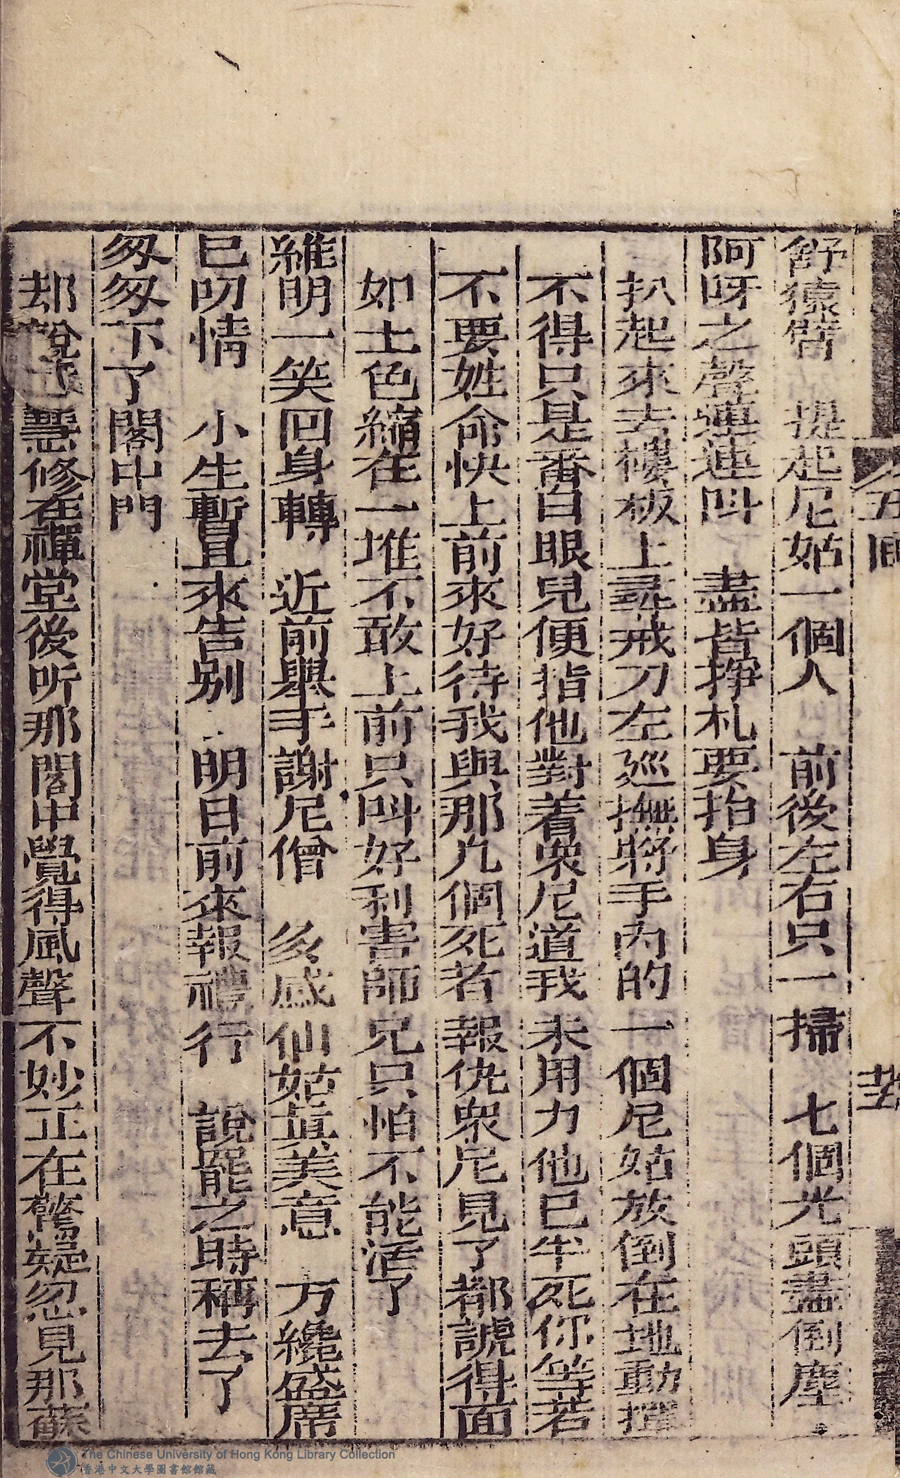 舒猿臂　提起尼姑一個人　前後左右只一掃　七個光頭盡倒塵
阿呀之聲連連叫　盡皆掙札要抬身
扒起來去樓板上尋戒刀左廵撫將手內的一個尼姑放倒在地動撣
不得只是番白眼兒便指他對着衆尼道我未用力他已半死你等若
不要姓命快上前來好待我與那几個死者報仇衆尼見了都諕得面
如土色縮在一堆不敢上前只叫好利害師兄只怕不能活了
維明一笑回身轉　近前舉手謝尼僧　多感仙姑真美意　方纔盛席
已叨情　小生暫且來告别　明日前來報禮行　說罷之時稱去了
匆匆下了閣中門
却說慧修在禪堂後听那閣中覺得風聲不妙正在驚疑忽見那蘇
五囬
The Chinese University of Hong Kong Library Collection
香港中文大學圖書館館藏